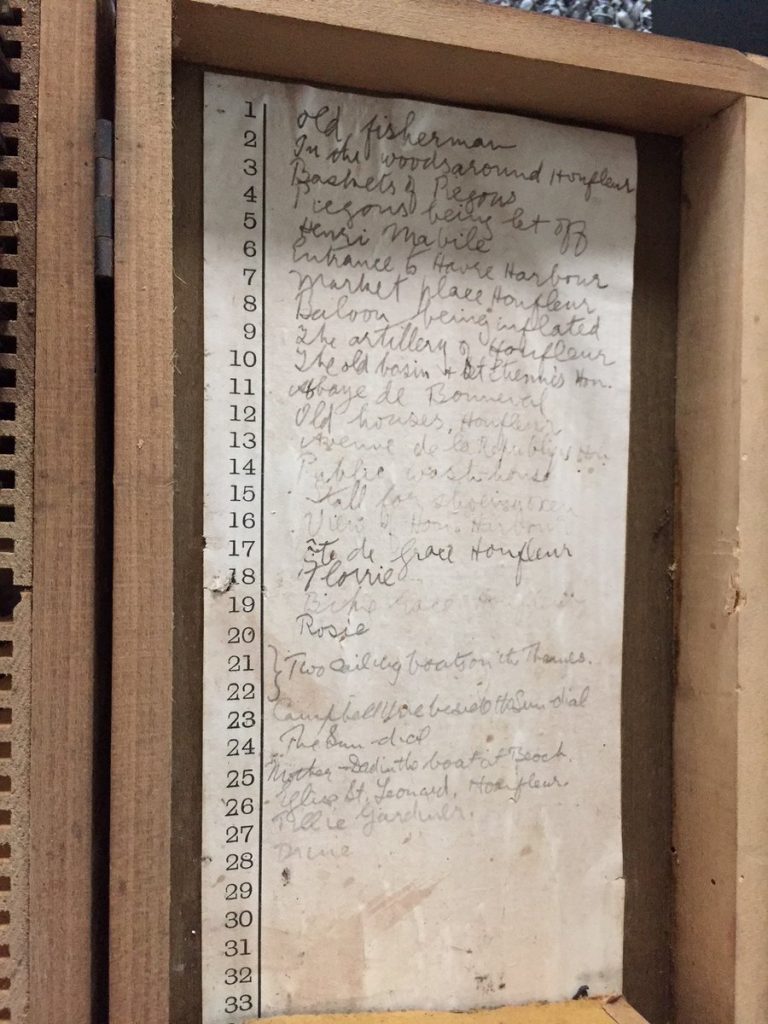 1 Old fisherman
2 In the woods around Honfleur
3 Baskets of Piegons
4 Piegons being let off
5 Henri Mabile
6 Entrance to Havre Harbour
7 Market place Honfleur
8 Baloon being inflated
9 The artillery of Honfleur
10 The old basin + St Etienne's Hon.
11 Abbaye de Bonneval
12 Old houses, Honfleur
13 Avenue de la République Hon
14 Public wash-house
15 Stall for
16 View of Hon. Harbour
17 Côte de Grace Honfleur
18 Florrie
19 Bike race
20 Rosie
21 } Two sailing boats on the Thames.
22
23 Campbell beside the Sun-dial
24 The Sun-dial
25 Mother + Dad in the boat at Beach.
26 Eglise St. Leonard, Honfleur.
27 Gardner.
28
29
30
31
32
33